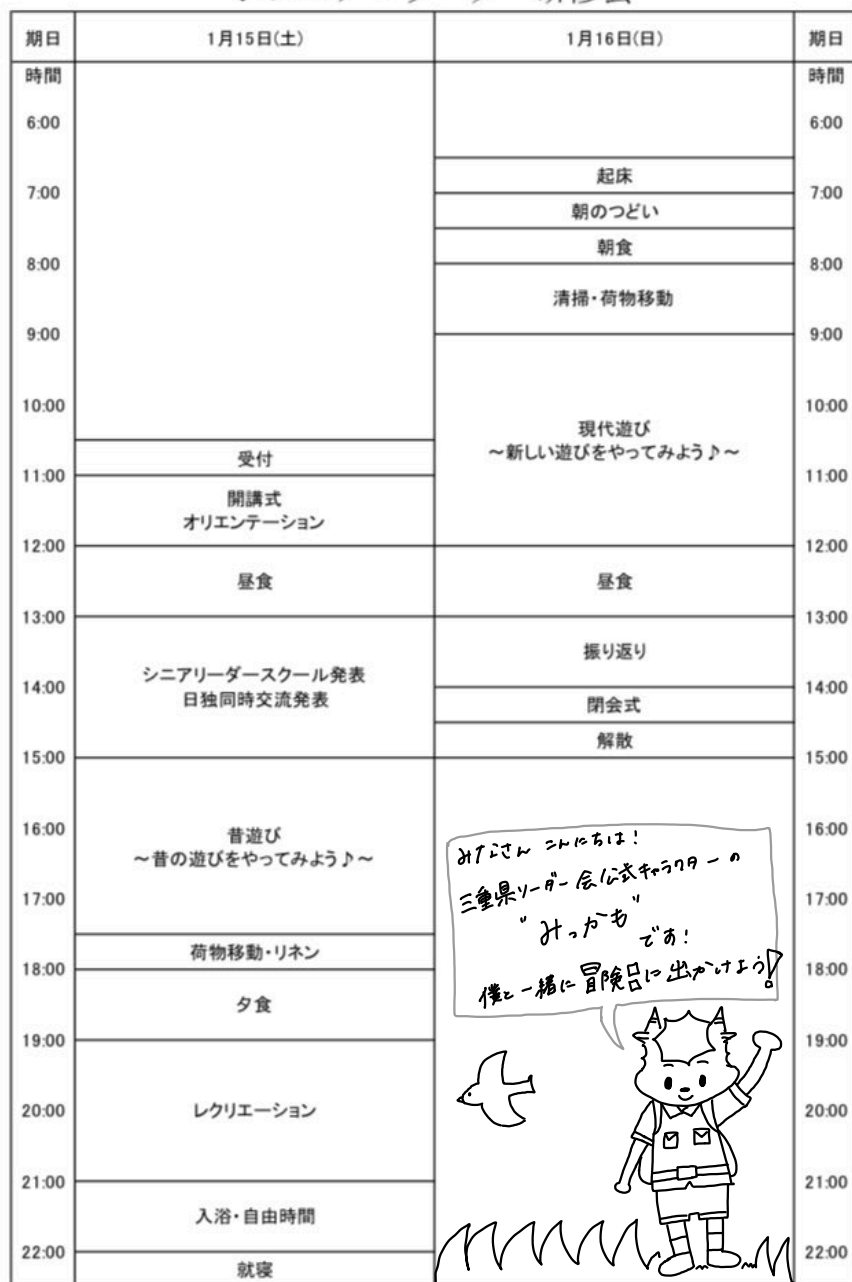 期日 1月15日(土) 1月16日(日) 期日
時間 時間
6:00 6:00
起床
7:00 7:00
朝のつどい
朝食
8:00 8:00
清掃・荷物移動
9:00 9:00
10:00 10:00
現代遊び
～新しい遊びをやってみよう♪～
受付
11:00 11:00
開講式
オリエンテーション
12:00 12:00
昼食 昼食
13:00 13:00
振り返り
シニアリーダースクール発表
日独同時交流発表
14:00 14:00
閉会式
解散
15:00 15:00
16:00 16:00
昔遊び
～昔の遊びをやってみよう♪～
17:00 17:00
荷物移動・リネン
18:00 18:00
夕食
19:00 19:00
レクリエーション
20:00 20:00
21:00 21:00
入浴・自由時間
22:00 22:00
就寝
みなさん こんにちは！
三重県リーダー会公式キャラクターの
"みっかも"
です！
僕と一緒に冒険に出かけよう！